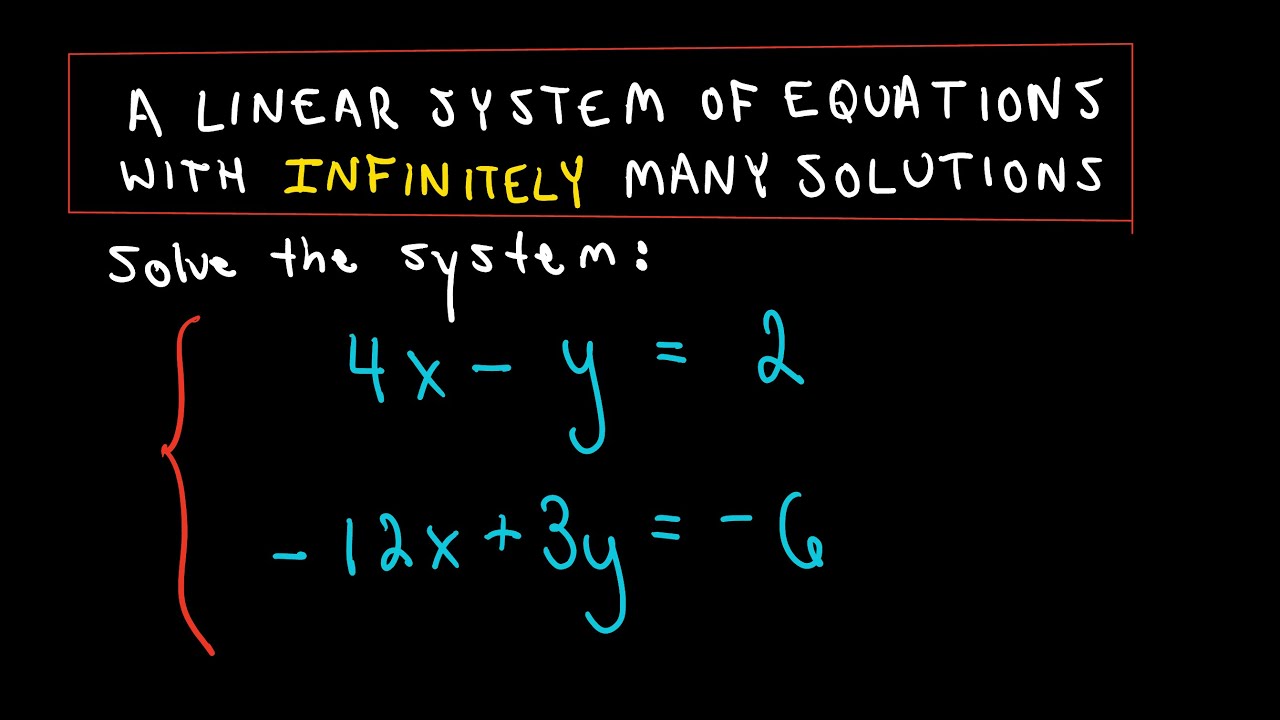 A LINEAR SYSTEM OF EQUATIONS
WITH INFINITELY MANY SOLUTIONS
Solve the system:
4x - y = 2
-12x + 3y = -6